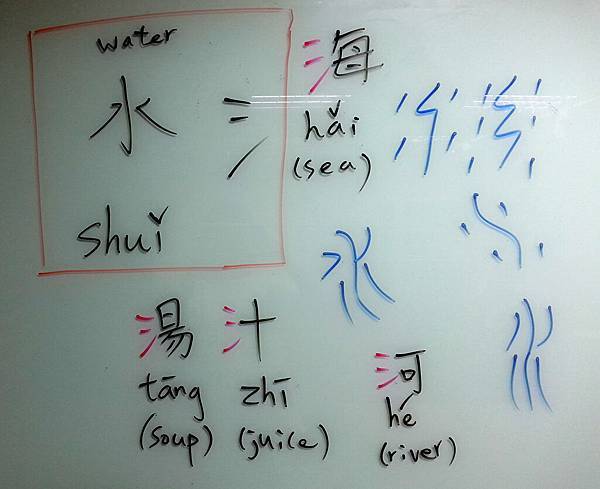 water
水 氵
shuǐ
海
hǎi
(sea)
湯
tāng
(soup)
汁
zhī
(juice)
河
hé
(river)